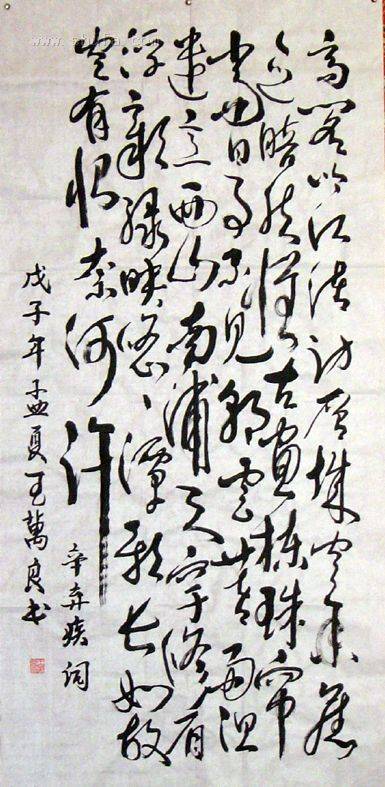 高阁临江渚访层城空余旧
迹黯然怀古画栋珠帘
当日事不见朝云暮雨但
遗意西山南浦天宇修眉
浮新绿映悠、潭影长如故
空有恨奈何许
辛弃疾词
戊子年孟夏王萬良书